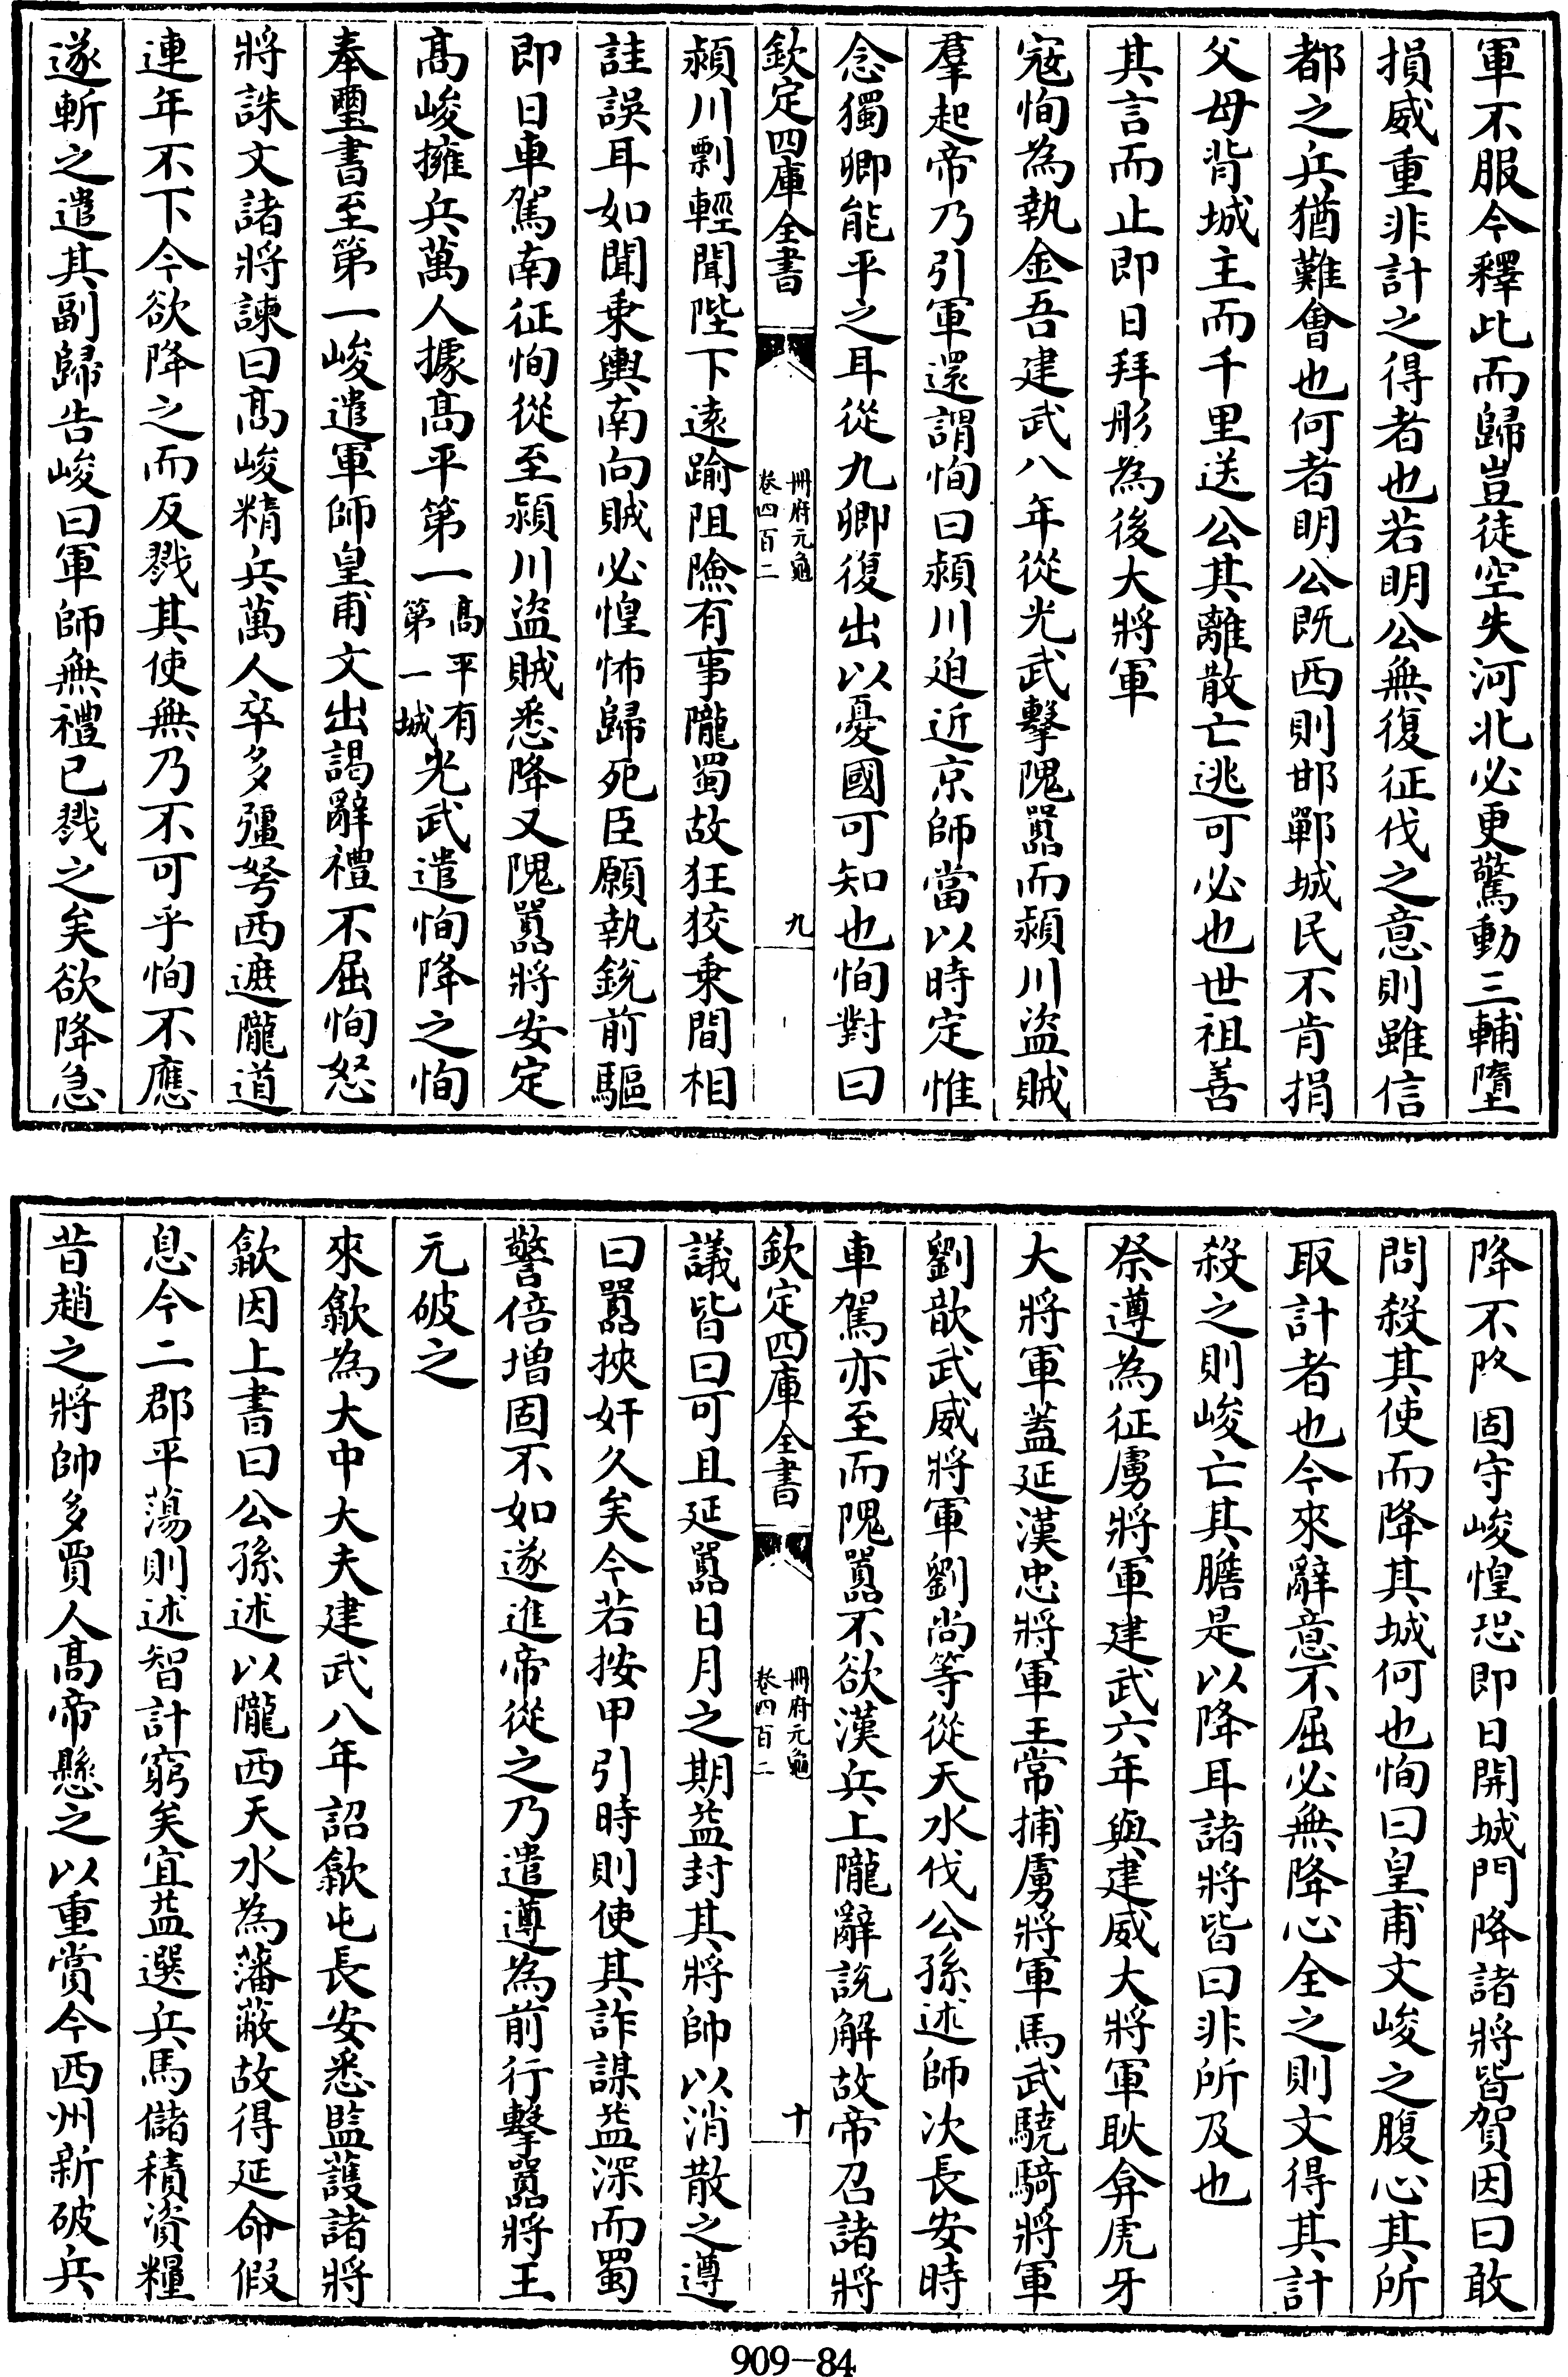 軍不服今釋此而歸豈徒空失河北必更驚動三輔墮
損威重非計之得者也若明公無復征伐之意則雖信
都之兵猶難㑹也何者明公既西則邯鄲城民不肯捐
父母背城主而千里送公其離散亡逃可必也世祖善
其言而止即日拜彤為後大將軍
寇恂為執金吾建武八年從光武擊隗囂而潁川盜賊
羣起帝乃引軍還謂恂曰潁川迫近京師當以時定惟
念獨卿能平之耳從九卿復出以憂國可知也恂對曰
欽定四庫全書
冊府元龜
卷四百二
九
潁川剽輕聞陛下逺踰阻險有事隴蜀故狂狡乗間相
詿誤耳如聞乗輿南向賊必惶怖歸死臣願執鋭前驅
即日車駕南征恂從至潁川盜賊悉降又隗囂將安定
髙峻擁兵萬人據髙平第一髙平有第一城光武遣恂降之恂
奉璽書至第一峻遣軍師皇甫文出謁辭禮不屈恂怒
將誅文諸將諫曰髙峻精兵萬人卒多彊弩西遮隴道
連年不下今欲降之而反戮其使無乃不可乎恂不應
遂斬之遣其副歸告峻曰軍師無禮已戮之矣欲降急
降不欲固守峻惶恐即日開城門降諸將皆賀因曰敢
問殺其使而降其城何也恂曰皇甫文峻之腹心其所
取計者也今來辭意不屈必無降心全之則文得其計
殺之則峻亡其膽是以降耳諸將皆曰非所及也
祭遵為征虜將軍建武六年與建威大將軍耿弇虎牙
大將軍蓋延漢忠將軍王常捕虜將軍馬武驍騎將軍
劉歆武威將軍劉尚等從天水伐公孫述師次長安時
車駕亦至而隗囂不欲漢兵上隴辭説解故帝召諸將
欽定四庫全書
冊府元龜
卷四百二
十
議皆曰可且延囂日月之期益封其將帥以消散之遵
曰囂挾奸久矣今若按甲引時則使其詐謀益深而蜀
警倍増固不如遂進帝從之乃遣遵為前行擊囂將王
元破之
來歙為大中大夫建武八年詔歙屯長安悉監護諸將
歙因上書曰公孫述以隴西天水為藩蔽故得延命假
息今二郡平蕩則述智計窮矣宜益選兵馬儲積資糧
昔趙之將帥多賈人髙帝懸之以重賞今西州新破兵
909-84